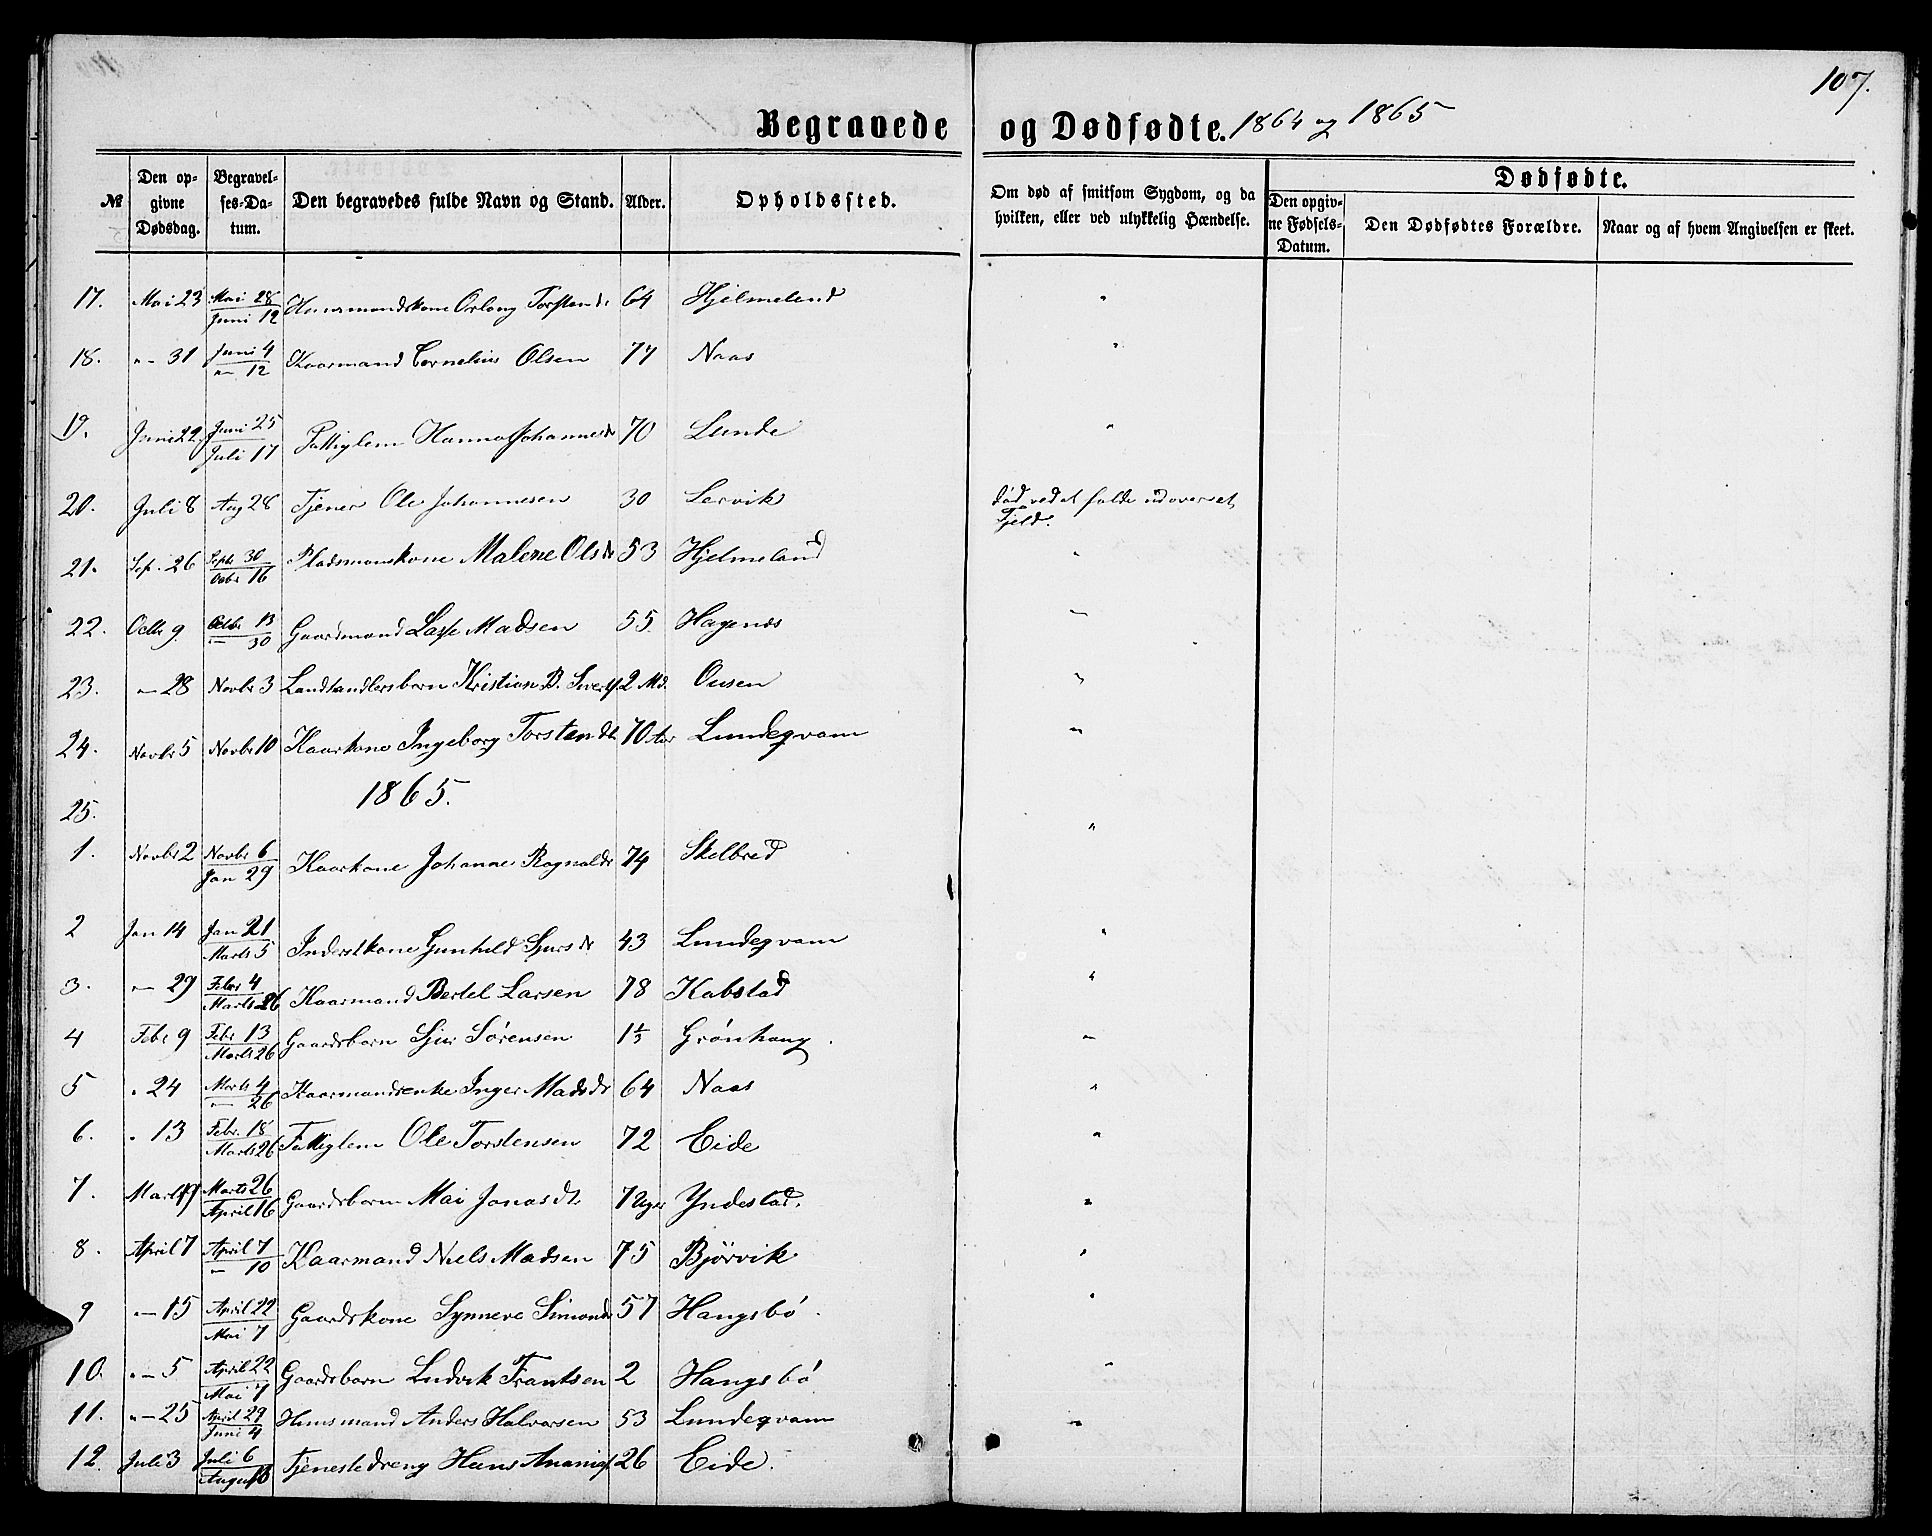 107.
Begravede og Dødfødte. 1864 og 1865
№
Den opgivne Dødsdag.
Begravelses-Datum.
Den begravedes fulde Navn og Stand.
Alder.
Opholdssted.
Om død af smitsom Sygdom, og da hvilken, eller ved ulykkelig Hændelse.
Dødfødte.
Den opgivne Fødsels-Datum.
Den Dødfødtes Forældre.
Naar og af hvem Angivelsen er skeet.
17. Mai 23 Mai 28 Juni 12 Huusmandskone Torstensdr 64 Hjelmeland "
18. "— 31 Juni 4 "— 12 Kaarmand Cornelius Olsen 77 Naas "
19. Juni 22 Juni 25 Juli 17 Fattiglem Hanna Johannesdr 70 Lunde "
20. Juli 8 Aug 28 Tjener Ole Johannesen 30 Lervik død ved at falde ud over et Fjeld.
21. Sep. 26 Septr 30 Octbr 16 Pladsmanskone Malene Olsdr 53 Hjelmeland "
22. Octbr 9 Octbr 13 — 30 Gaardmand Lasse Madsen 55 Hagenæs "
23. "— 28 Novbr 3 Landhandlersbarn Kristian B. 2 Md. Ousen "
24. Novbr 5 Novbr 10 Kaarkone Ingeborg Torstensdtr 70 Aar Lundeqvam "
1865.
25.
1. Novbr 2 Novbr 6 Jan 29 Kaarkone Johanne Ragnaldr 74 Skelbred "
2 Jan 14 Jan 21 Marts 5 Inderstkone Gunhild Sjursdr 43 Lundeqvam "
3. "— 29 Febr 4 Marts 26 Kaarmand Bertel Larsen 78 Kabstad "
4 Febr 9 Febr 13 Marts 26 Gaardsbarn Sjur Sørensen 1⅓ Grönhaug. "
5 " 24 Marts 4 "— 26 Kaarmandsenke Inger Madsdr 64 Naas "
6. " 13 Febr. 18 Marts 26 Fattiglem Ole Torstensen 72 Eide "
7. Marts 19 Marts 26 April 16 Gaardsbarn Mai Jonasdtr 7 Uger Yndestad. "
8. April 7 April 7 "— 10 Kaarmand Niels Madsen 75 Björvik "
9 "— 15 April 22 Mai 7 Gaardskone Synneve Simonsdr 57 Hangsbö. "
10. "— 5 April 22 Mai 7 Gaardsbarn Ludvik Frantsen 2 Hangsbö "
11. "— 25 April 29 Juni 4 Husmand Anders Halvorsen 53 Lundeqvam "
12. Juli 3 Juli 6 August Tjenestedreng Hans 26 Eide.